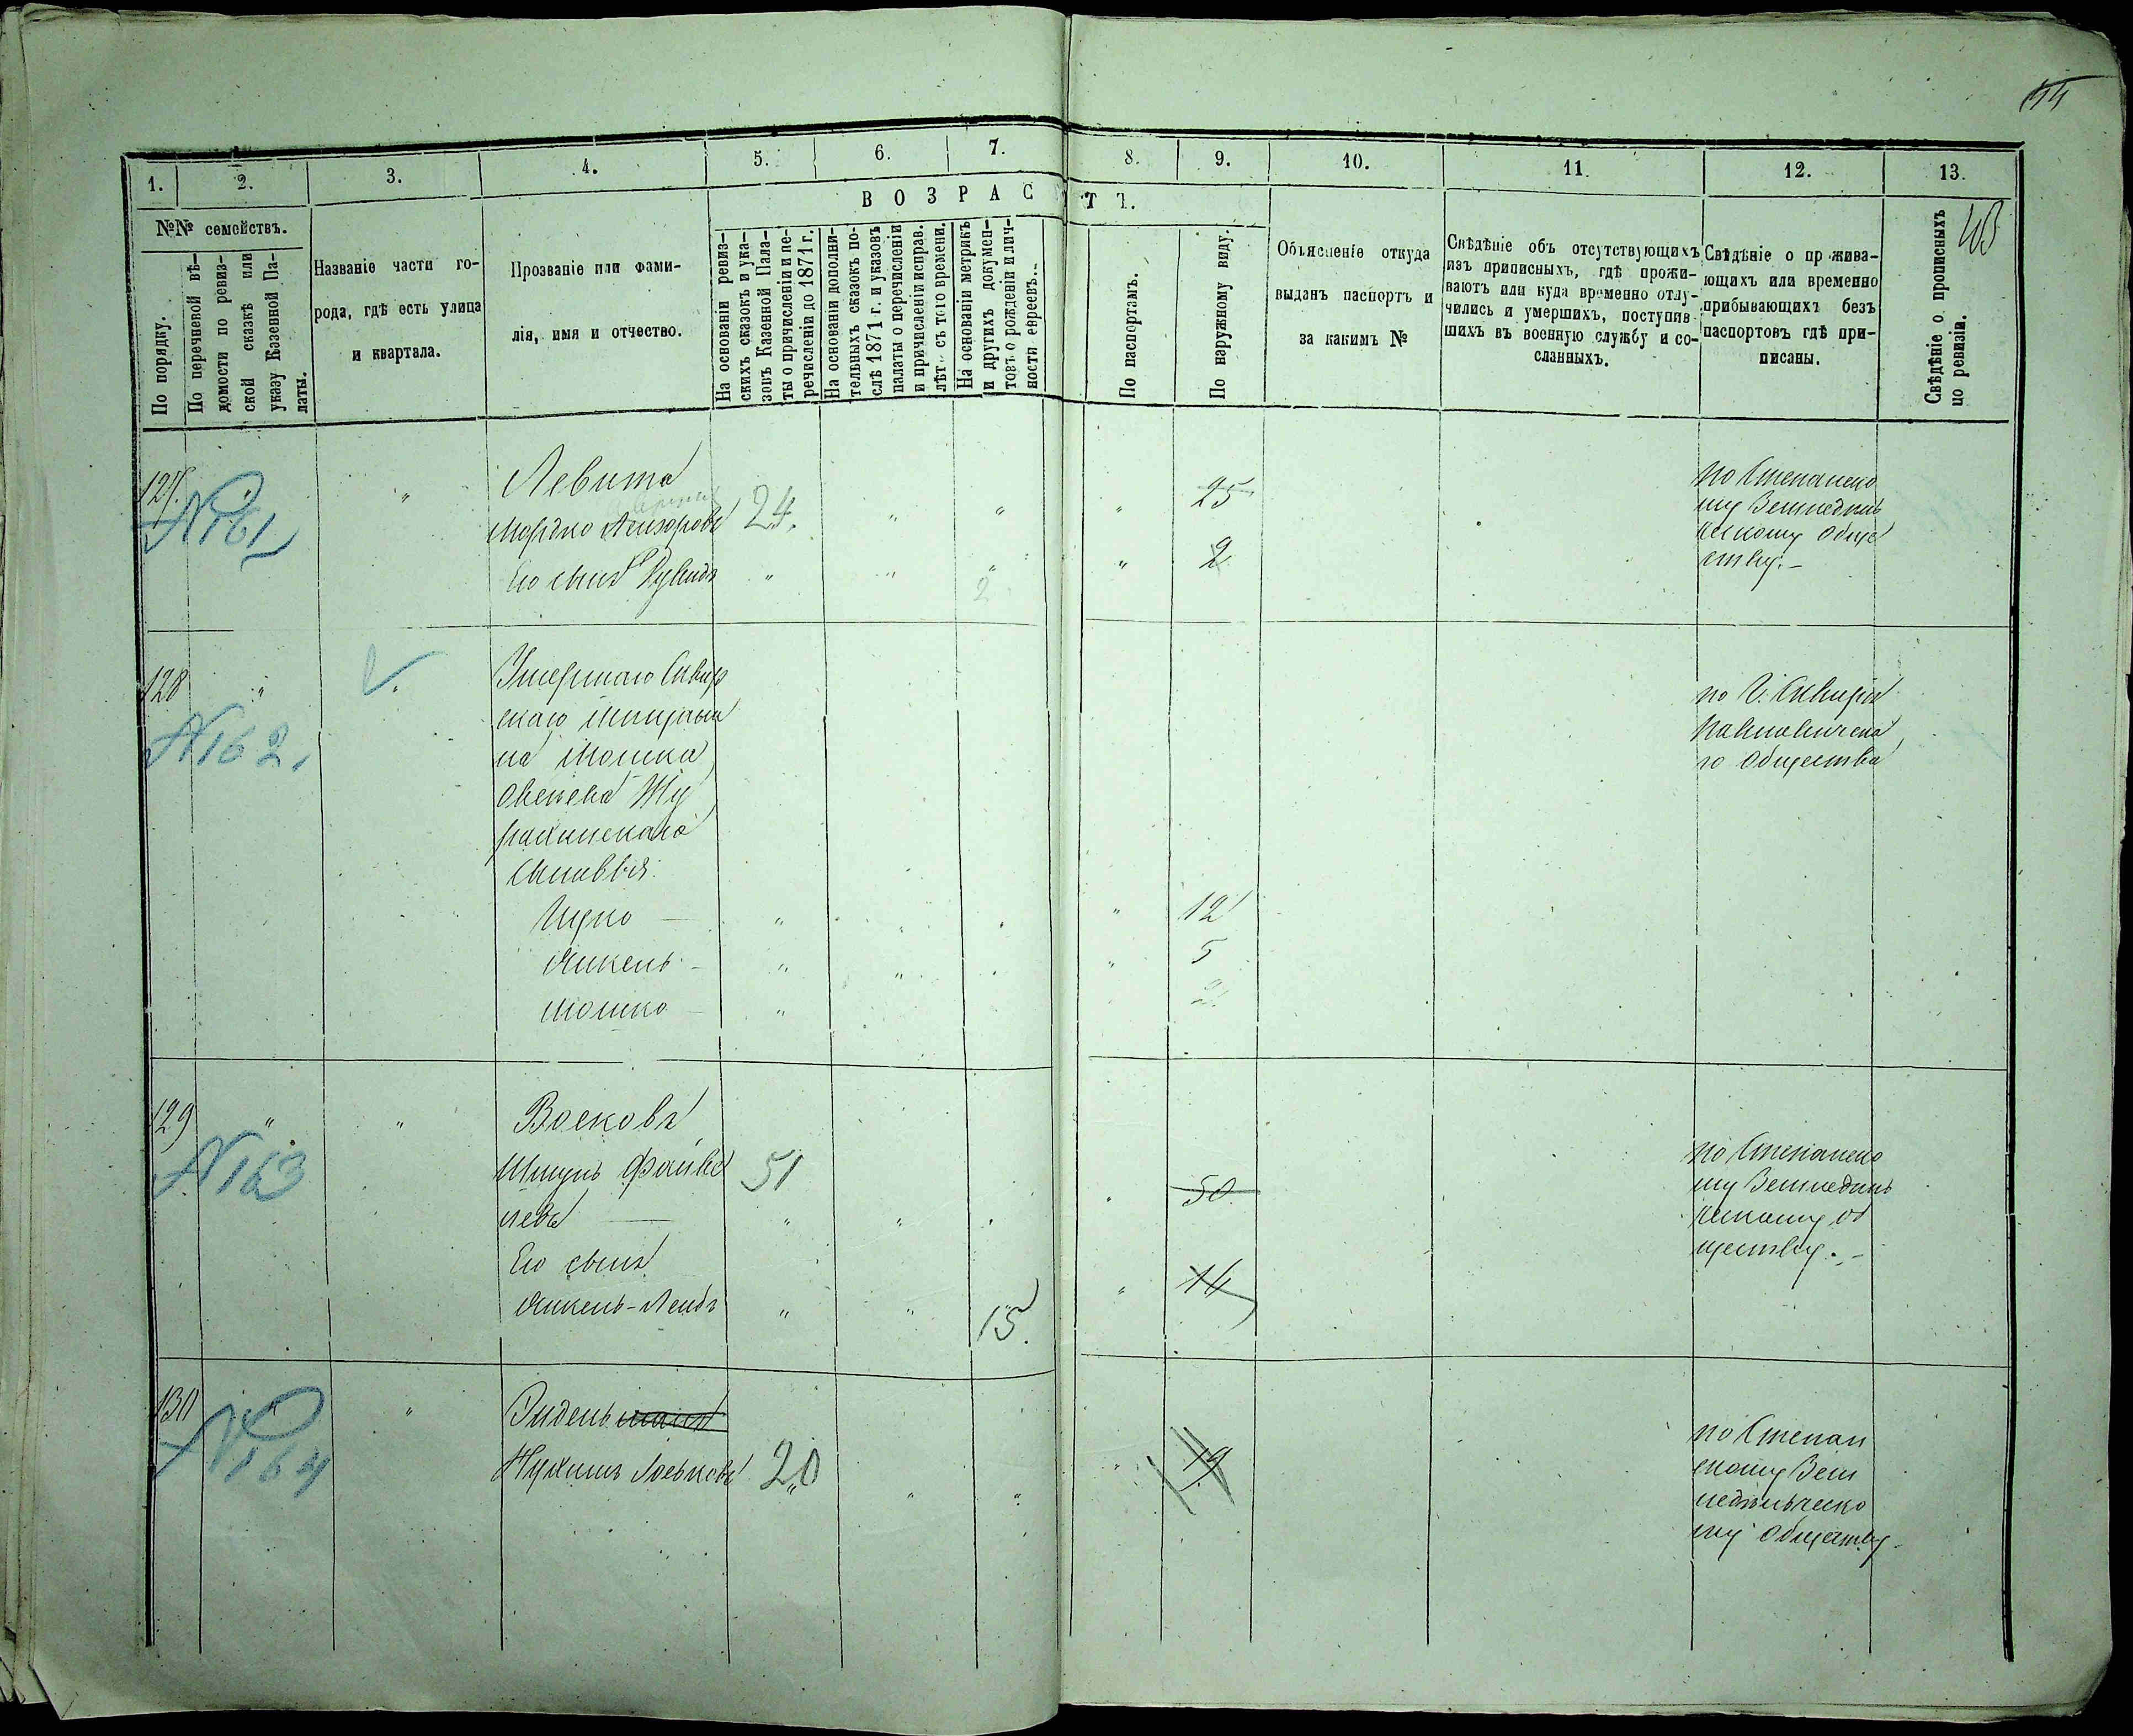 1.
2.
3.
4.
5.
6.
7.
8.
9.
10.
11.
12.
13.
ВОЗРАСТЪ.
№№ семействъ.
По порядку.
По перечневой вѣ-
домости по ревиз-
ской сказкѣ или
указу Казенной Па-
латы.
Названіе части го-
рода, гдѣ есть улица
и квартала.
Прозваніе или фами-
лія, имя и отчество.
На основаніи ревиз-
скихъ сказокъ и ука-
зовъ Казенной Пала-
ты о причисленіи и пе-
речисленіи до 1871 г.
На основаніи дополни-
тельныхъ сказокъ по-
слѣ 1871 г. и указовъ
палаты о перечисленіи
и причисленіи исправ.
лѣт съ того времени.
На основаніи метрикъ
и другихъ докумен-
товъ о рожденіи и лич-
ности евреевъ.
По паспортамъ.
По наружному виду.
Объясненіе откуда
выданъ паспортъ и
за какимъ №
Свѣдѣніе объ отсутствующихъ
изъ приписныхъ, гдѣ прожи-
ваютъ или куда временно отлу-
чились и умершихъ, поступив-
шихъ въ военную службу и со-
сланныхъ.
Свѣдѣніе о прожива-
ющихъ или временно
прибывающихъ безъ
паспортовъ гдѣ при-
писаны.
Свѣдѣніе о прописныхъ
по ревизіи.
127.
№161
Левита
Мордко Лейзоровъ 24. 25
Его сынъ Рувинъ 2 2
по Степанско
му Земледѣль
ческому обще
ству.-
128
№162.
Умершаго Сквир
скаго мѣщани
на Мошка
сыновья:
Ицко 12
Янкель 5
Мошко 2
по г. Сквирѣ
го общества
129
№163
Восковъ
Шмуль Файве 51 50
левъ
Его сынъ
Янкель-Лейбъ 15. 14
по Степанско
му Земледѣль
ческому об
ществу.-
130
№164
Нухимъ Іоськовъ 20 19
по Степан
скому Зем
ледѣльческо
му обществу.